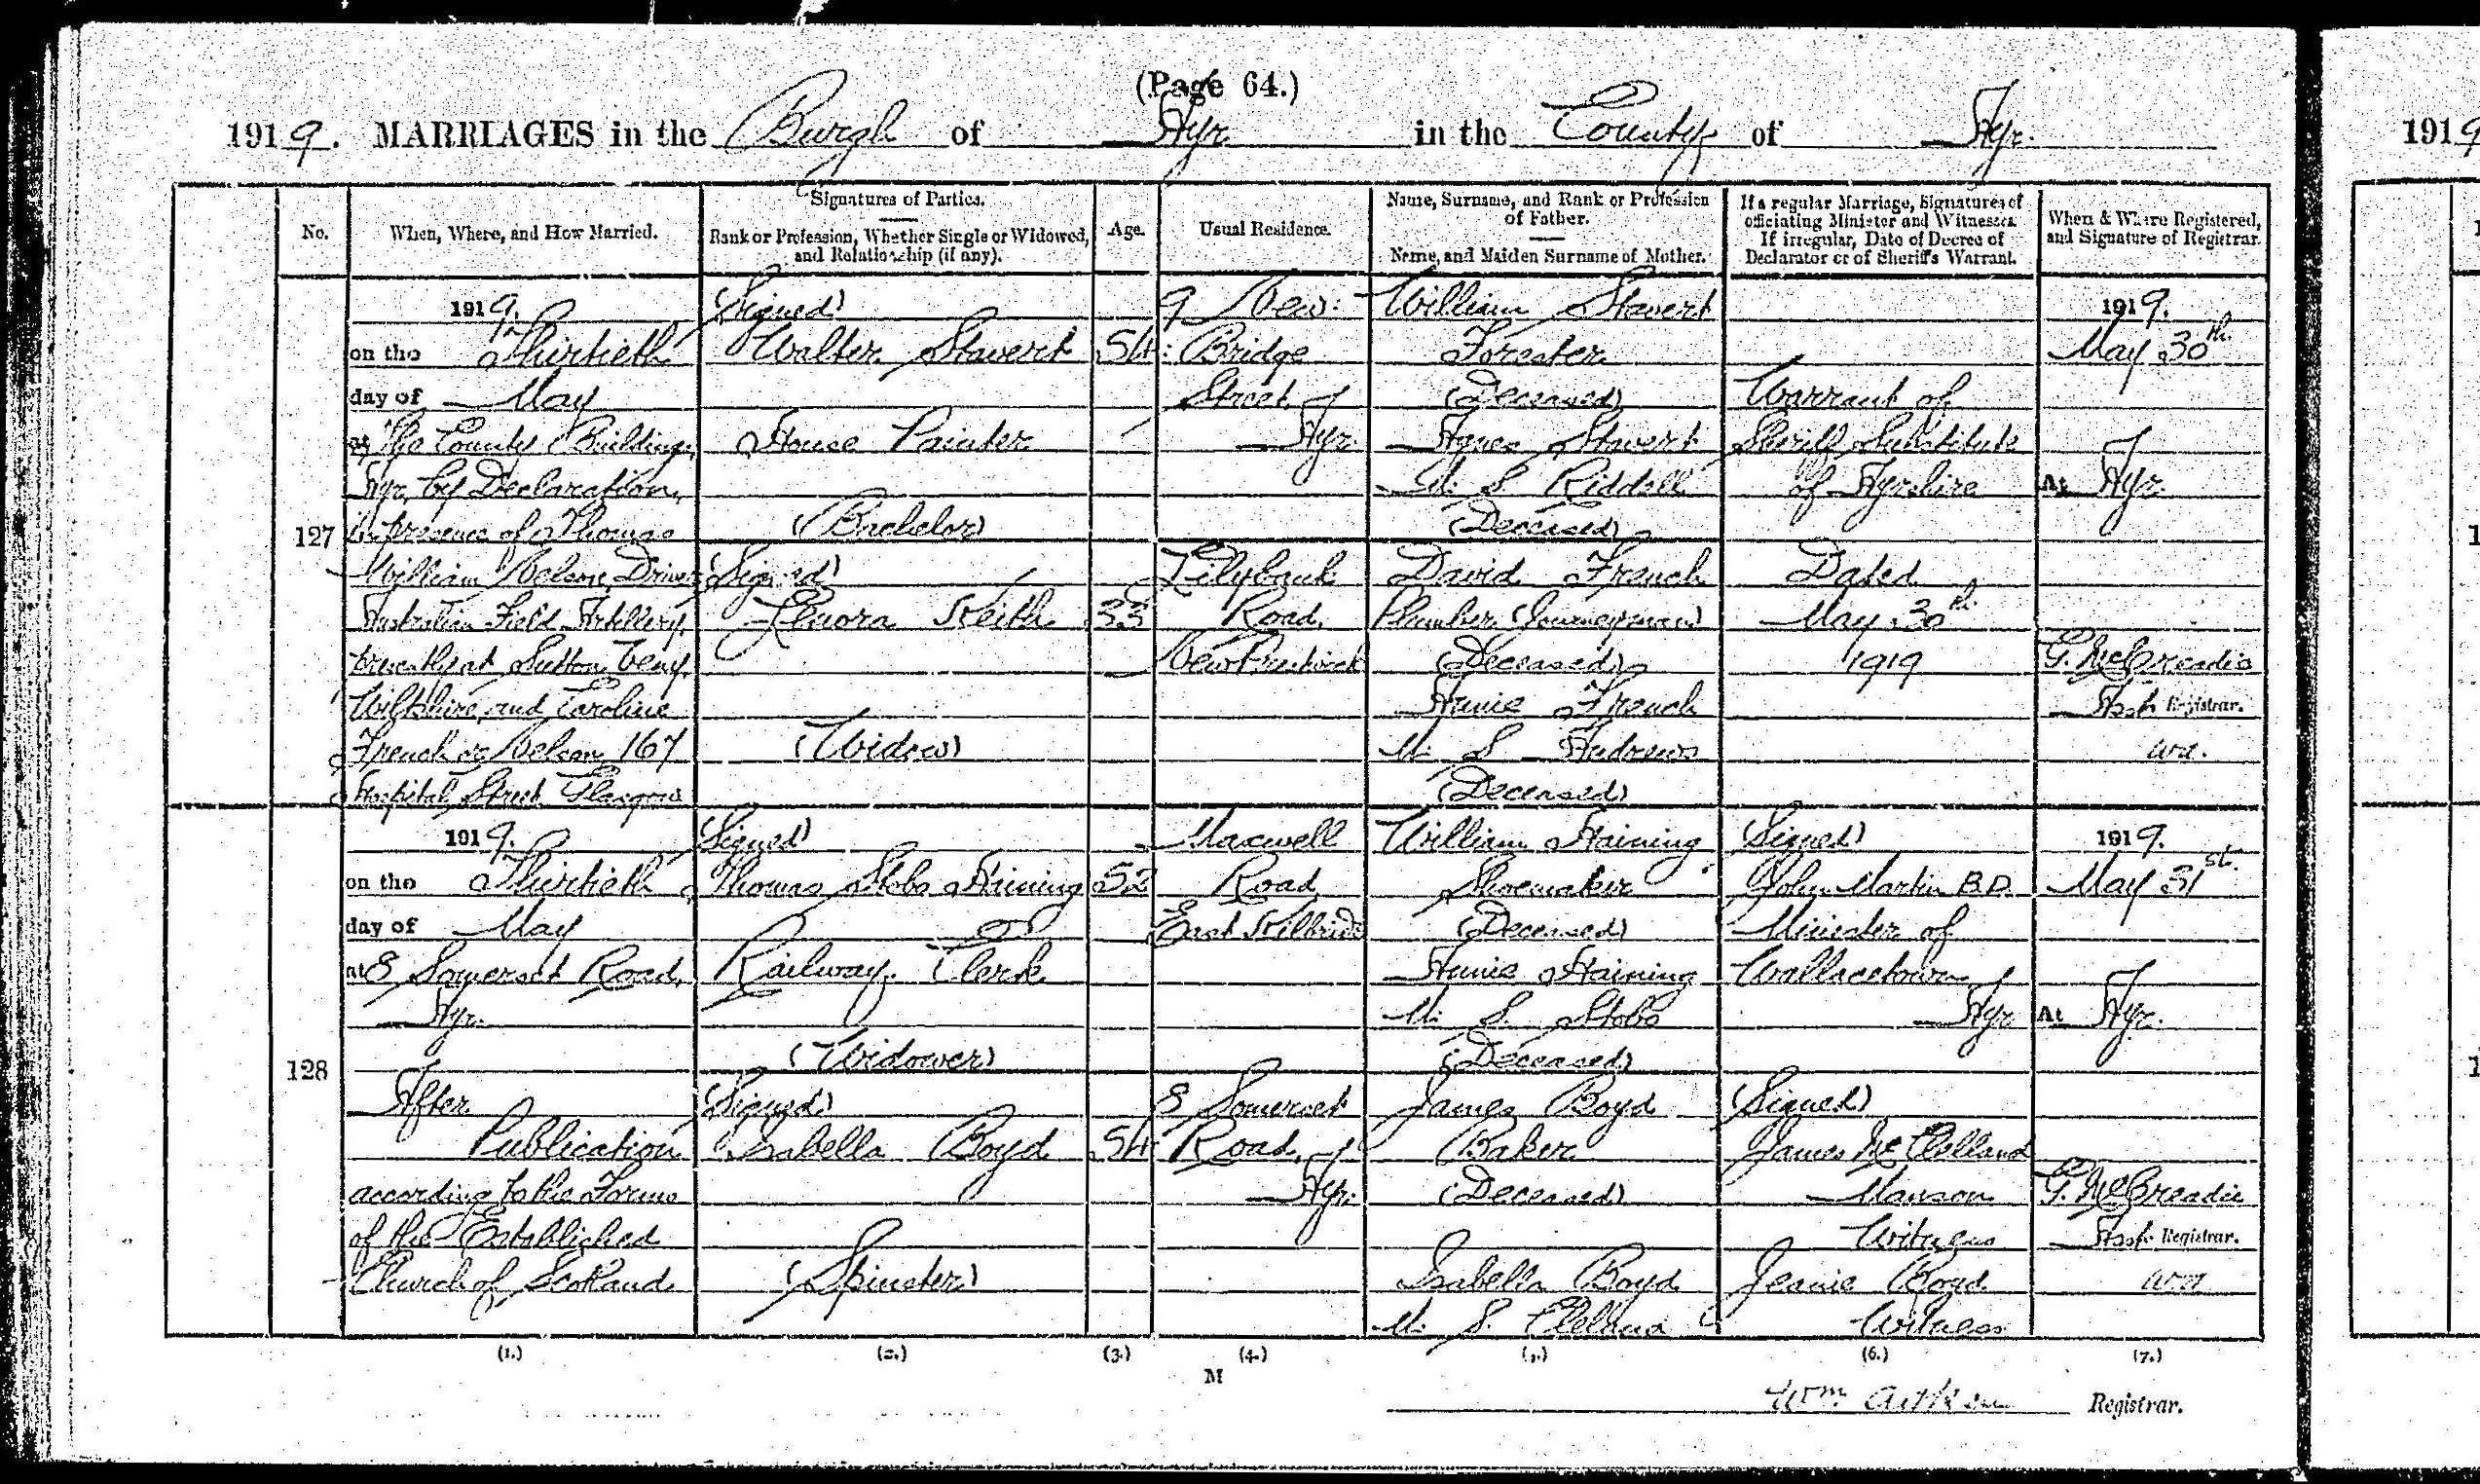 (Page 64.)
1919. MARRIAGES in the Burgh of Ayr. in the County of Ayr.
1919
No.
When, Where, and How Married.
Signatures of Parties.
Rank or Profession, Whether Single or Widowed, and Relationship (if any).
Age.
Usual Residence.
Name, Surname, and Rank or Profession of Father.
Name, and Maiden Surname of Mother.
If a regular Marriage, Signatures of officiating Minister and Witnesses.
If irregular, Date of Decree of Declarator or of Sheriff's Warrant.
When & Where Registered, and Signature of Registrar.
127
1919.
on the Thirtieth
day of May
at The County Buildings,
Ayr, by Declaration,
in presence of Thomas
William Nelson, Driver
Australian Field Artillery,
presently at Sutton Veny,
Wiltshire, and Caroline
French or Nelson, 167
Hospital Street Glasgow
(Signed)
Walter Stavert
House Painter
(Bachelor)
(Signed)
Lenora Keith
(Widow)
54
33
9 New:
:Bridge
Street,
Ayr.
Lilybank
Road,
New Prestwick
William Stavert
Forester
(Deceased)
Agnes Stavert
M. S. Riddell
(Deceased)
David French
Plumber (Journeyman)
(Deceased)
Annie French
M. S. Andrews
(Deceased)
Warrant of
Sheriff Substitute
of Ayrshire
Dated
May 30th.
1919
1919.
May 30th.
At Ayr.
G. McCreadie
Asst. Registrar.
WA.
128
1919.
on the Thirtieth
day of May
at 8 Somerset Road,
Ayr.
After
Publication
according to the Forms
of the Established
Church of Scotland
(Signed)
Thomas Stobo Haining
Railway Clerk
(Widower)
(Signed)
Isabella Boyd
(Spinster)
52
54
Maxwell
Road
East Kilbride
8 Somerset
Road,
Ayr.
William Haining
Shoemaker
(Deceased)
Annie Haining
M. S. Stobo
(Deceased)
James Boyd
Baker
(Deceased)
Isabella Boyd
M. S. Clelland
(Signed)
John Martin B.D.
Minister of
Wallacetown
Ayr
(Signed)
James McClelland
Manson
Witness
Jeanie Boyd
Witness
1919.
May 31st.
At Ayr.
G. McCreadie
Asst. Registrar.
(1.) (2.) (3.) (4.) (5.) (6.) (7.)
M
Wm. Aitken Registrar.